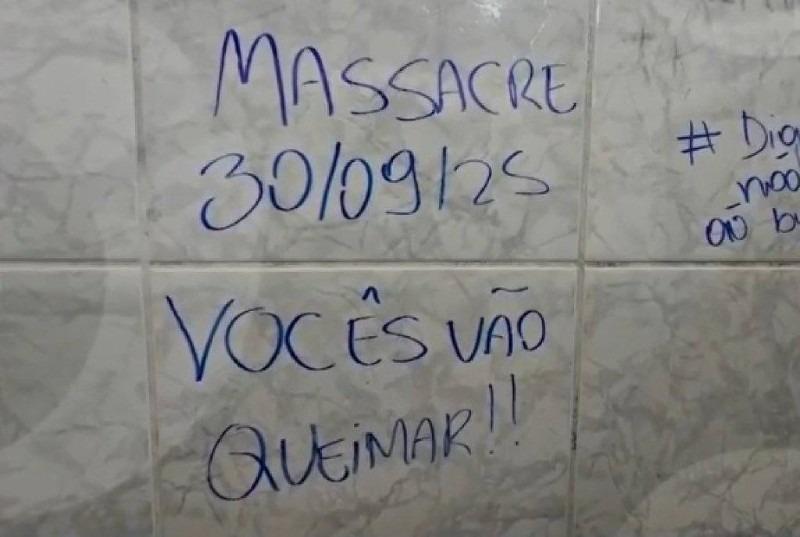 MASSACRE
30/09/25
VOCÊS VÃO
QUEIMAR!!
#
não
ao